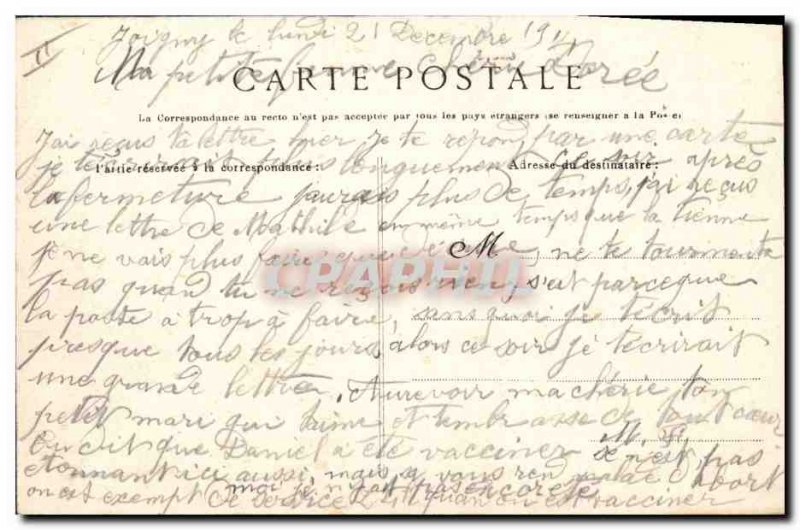 II
Joigny le lundi 21 Decembre 191
Ma petite femme chérie Dorée
CARTE POSTALE
La Correspondance au recto n'est pas acceptée par tous les pays étrangers (se renseigner a la Poste)
J'ai reçus ta lettre hier je te repond par une carte
je t'écrirais plus longuement ce soir après
Partie réservée à la correspondance :
Adresse du destinataire :
la fermeture j'aurais plus de temps, j'ai reçus
une lettre de Mathilde en même temps que la tienne
M
je ne vais plus faire que ne te tourmente
pas quand tu ne reçois rien, s'est parceque
la poste à trop à faire, sans quoi je t'écrit
presque tous les jours, alors ce soir je t'écrirait
une grande lettre. Aurevoir ma chérie ton
petit mari qui t'aime et t'embrasse de tout cœur
M. P.
On dit que Daniel à été vacciner se n'est pas
étonnant ici aussi, mais sa vous rend malade d'abort
moi je n'y ait pas encore été
on est exempt de service 24 quand on est vacciner
CPAPHIL